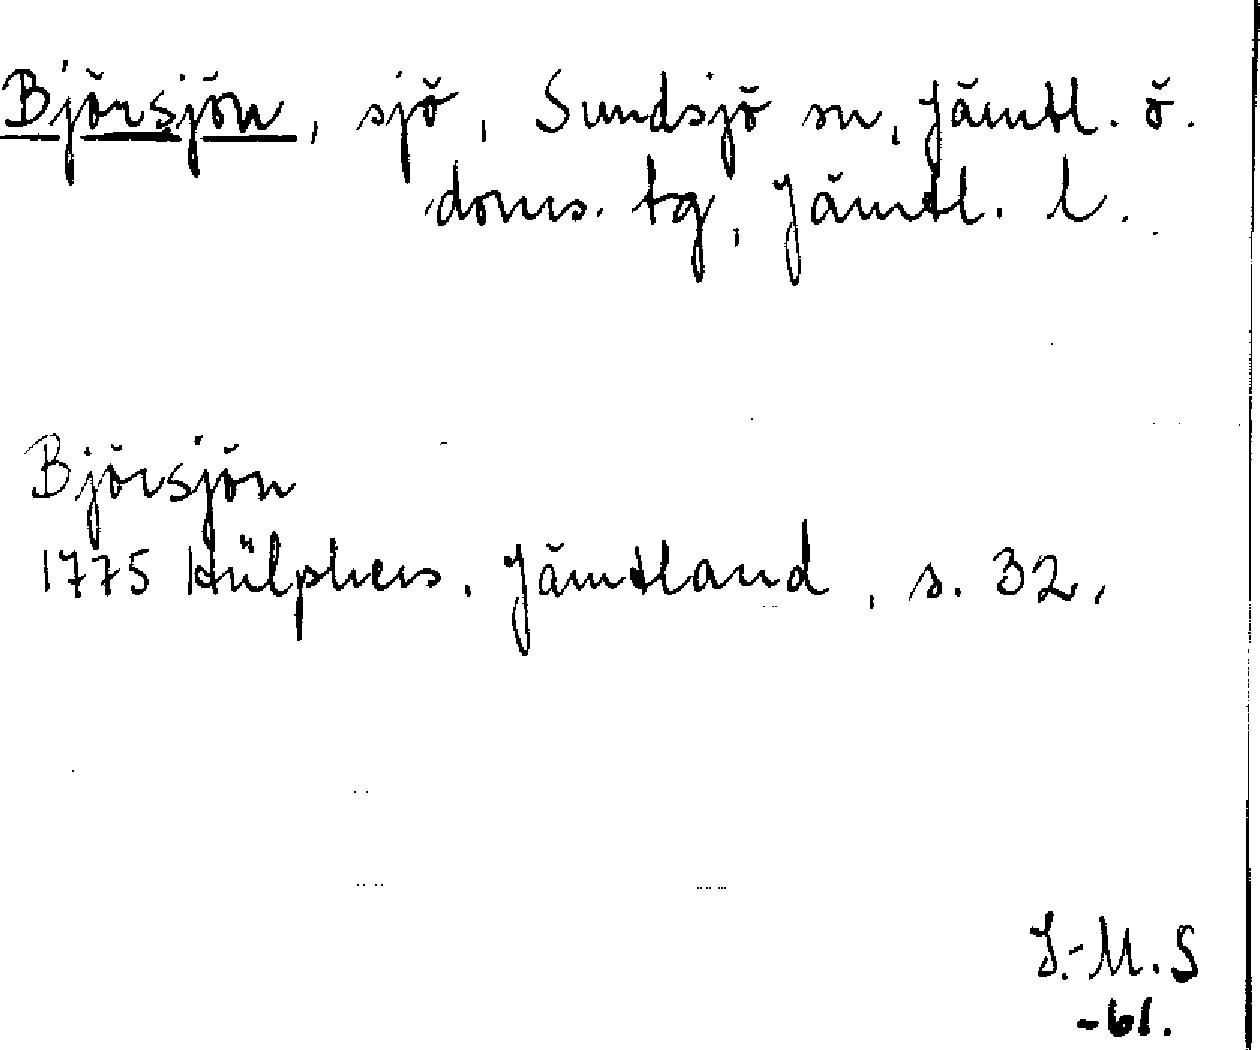 Björsjön, sjö, Sundsjö sn, Jämtl. ö.
doms. tg, Jämtl. l.
Björsjön
1775 Hülphers. Jämtland, s. 32,
I.-M.S
-61.